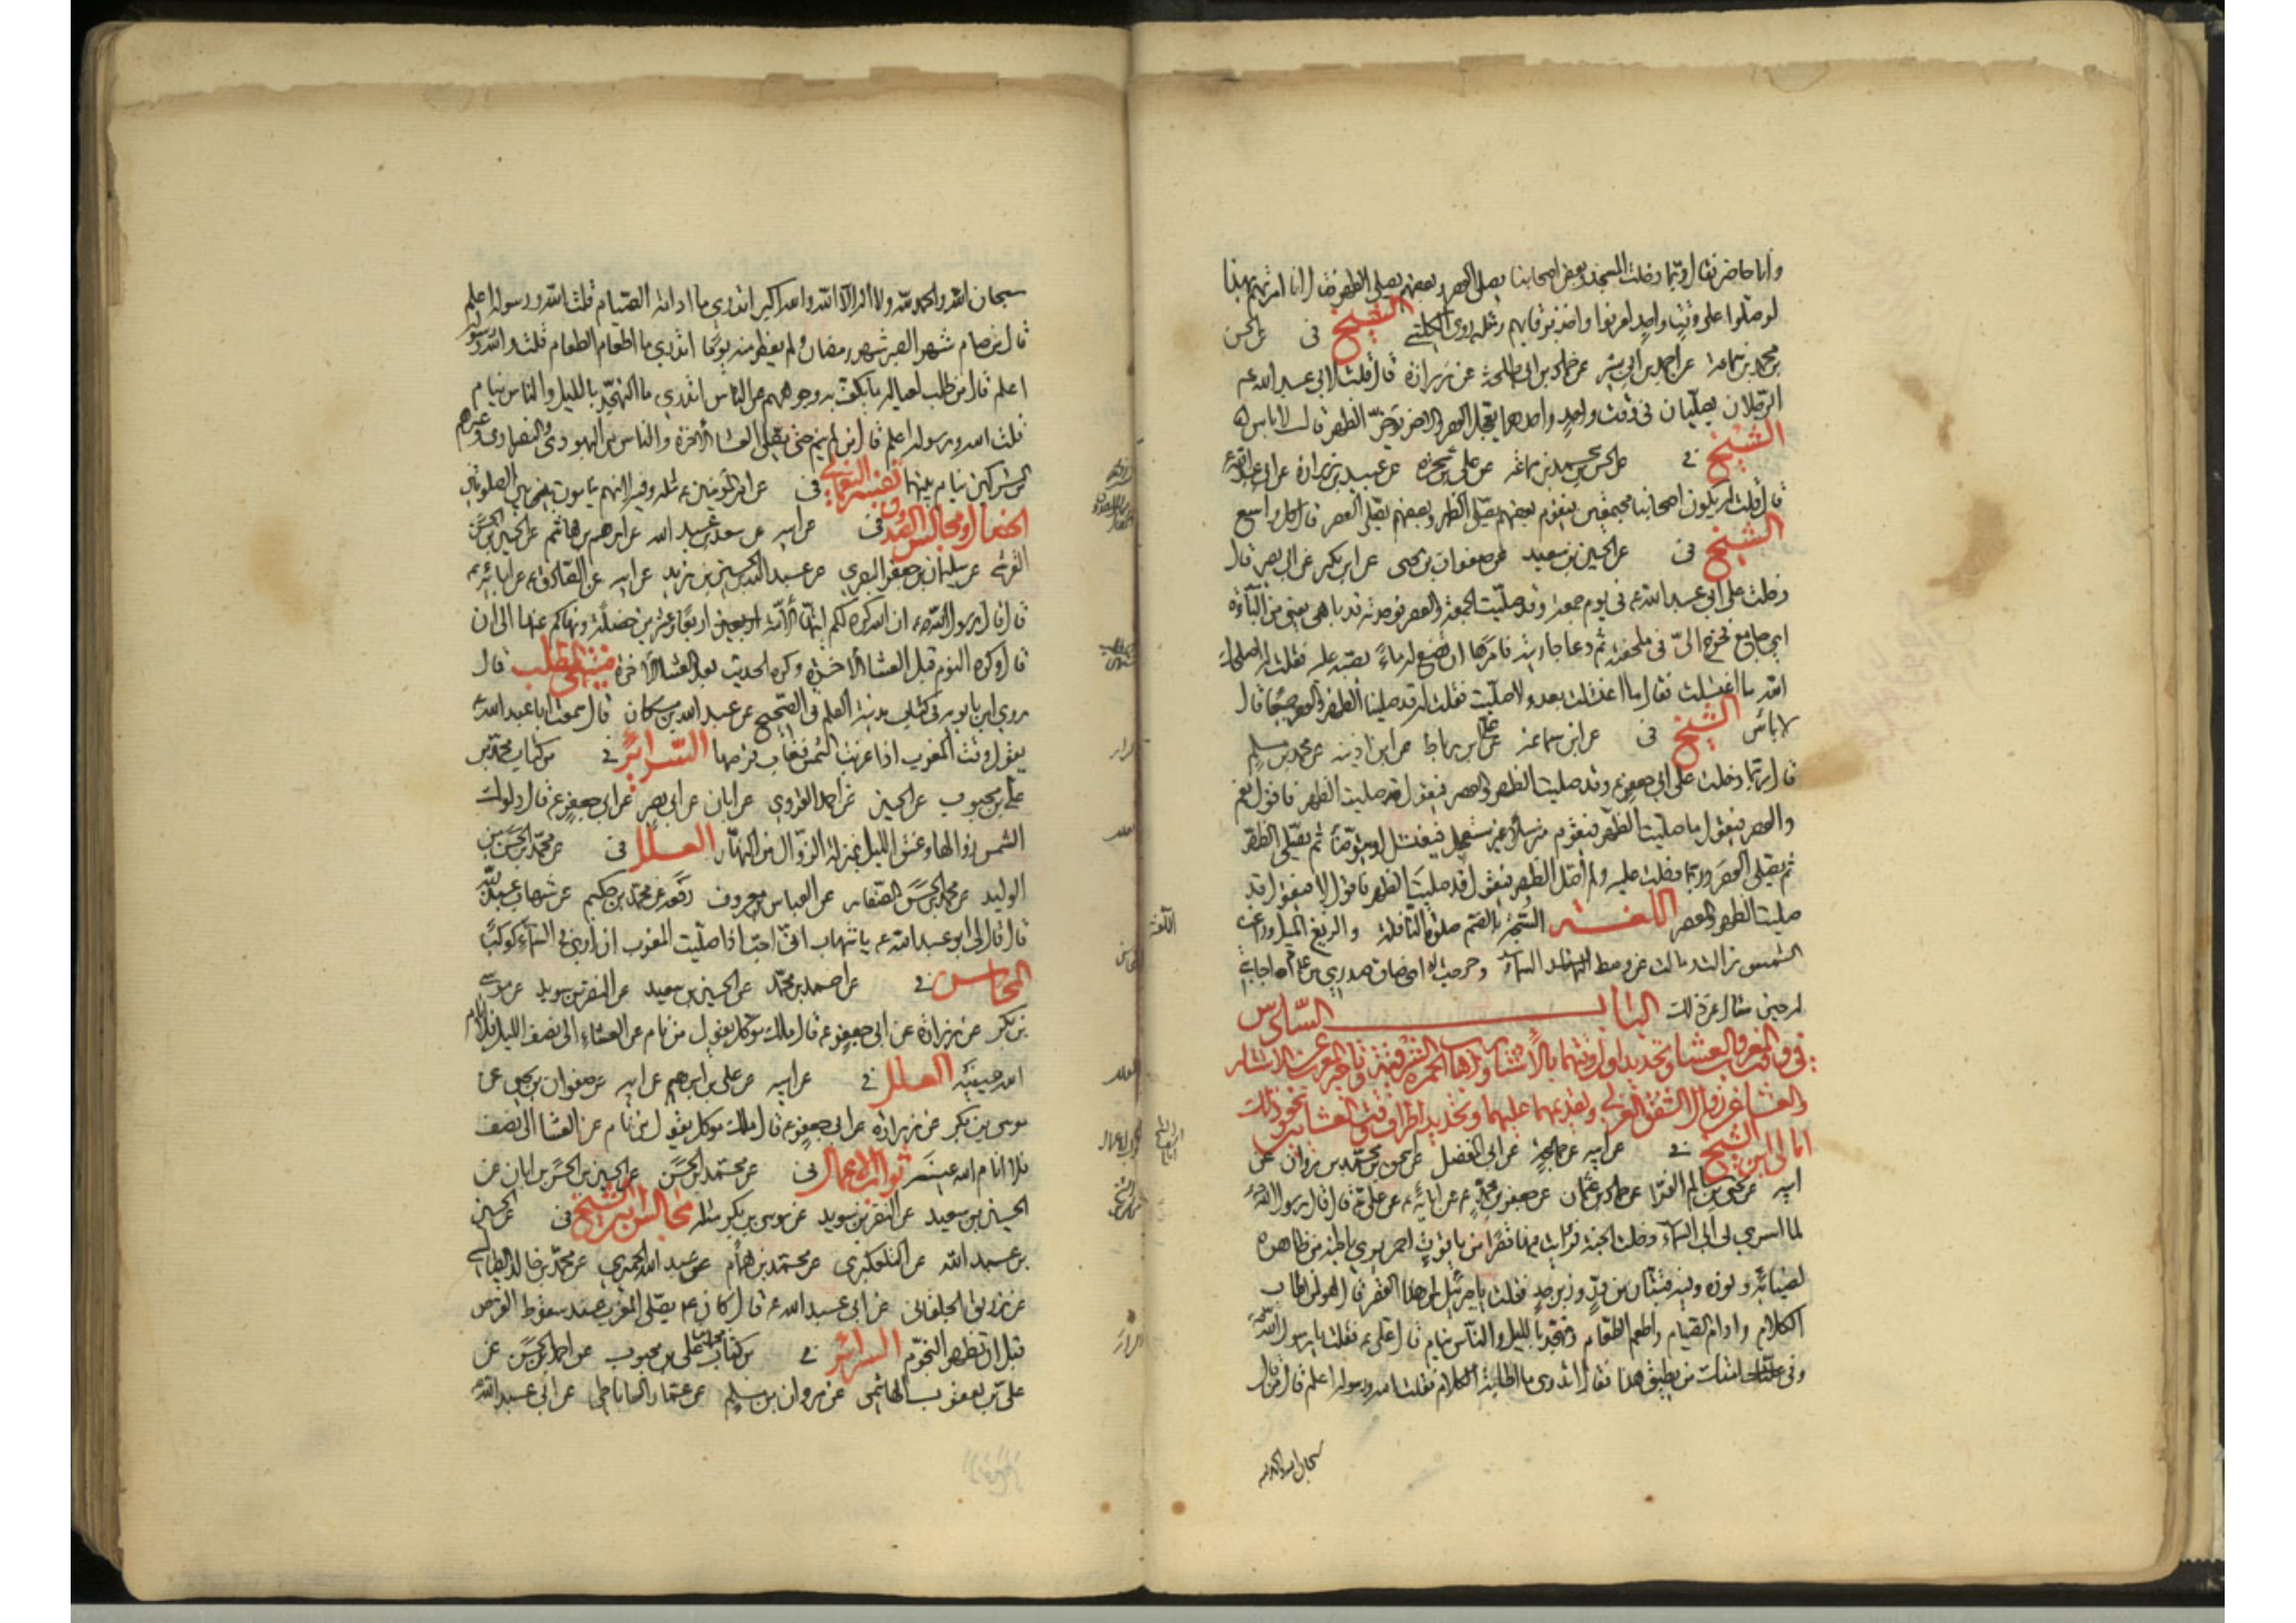 وانا حاضر فقال ربما دخلت المسجد وبعض اصحابنا يصلي العصر وبعضهم يصلي الظهر فقال انا امرتهم بهذا
لو صلوا على وقت واحد لعرفوا واخذ برقابهم الشيخ فى عن الحسن
بن محمد بن سماعة عن احمد بن ابي بشر عن حماد بن ابي طلحة عن زرارة قال قلت لابي عبد الله ع
الرجلان يصليان في وقت واحد واحدهما يعجل العصر والاخر يؤخر الظهر قال لا باس
الشيخ فى عن الحسن بن محمد بن سماعة عن عبيد بن زرارة عن ابي عبد الله ع
قال قلت يكون اصحابنا مجتمعين فيقوم بعضهم يصلي الظهر وبعضهم يصلي العصر قال كل واسع
الشيخ فى عن الحسين بن سعيد عن صفوان بن يحيى عن ابن بكير عن ابي بصير قال
دخلت على ابي عبد الله ع في يوم جمعة وقد صليت الجمعة والعصر فوجدته قد باهى يعني من الباءة
اي جامع فخرج الي في ملحفة ثم دعا جاريته فامرها ان تضع له ماء يصبه عليه فقلت له اصلحك
الله ما اغتسلت فقال ما اغتسلت بعد ولا صليت فقلت له قد صلينا الظهر والعصر جميعا قال
لا باس الشيخ فى عن ابن سماعة عن علي بن رباط عن ابن اذينة عن محمد بن مسلم
قال ربما دخلت على ابي جعفر ع وقد صليت الظهر والعصر فيقول قد صليت الظهر فاقول نعم
والعصر فيقول ما صليت الظهر فيقوم مترسلا غير مستعجل فيغتسل او يتوضأ ثم يصلي الظهر
ثم يصلي العصر وربما دخلت عليه ولم اصل الظهر فيقول قد صليت الظهر فاقول لا فيقول قد
صليت الظهر والعصر اللغة السبحة بالضم صلوة النافلة والزيغ الميل وزاغت
الشمس زالت مالت عن وسط السماء وحرجت اى ضاق صدري من
لمرحين سال عن ذلك الباب السادس
في وقت المغرب والعشا وتحديد اول وقتهما
والعشا عن زوال الشفق الغربي وتقديمهما عليهما وتحديد اطراف وقتى العشائين ونحو ذلك
امالى ابن الشيخ فى عن ابيه عن ابي المفضل عن
ابيه عن يحيى بن سالم الفرا عن حماد بن عثمان عن جعفر بن محمد عن ابائه ع عن علي ع قال قال رسول الله ص
لما اسري بي الى السماء دخلت الجنة فرايت فيها قصرا من ياقوت احمر يرى باطنه من ظاهره
لضيائه ونوره وفيه قبتان من در وزبرجد فقلت يا جبرئيل لمن هذا القصر قال هو لمن اطاب
الكلام وادام الصيام واطعم الطعام وتهجد بالليل والناس نيام قال علي ع فقلت يا رسول الله ص
وفي امتك من يطيق هذا فقال اتدري ما اطابة الكلام فقلت الله ورسوله اعلم قال من قال
سبحان الله والحمد لله
اللغة
سبحان الله والحمد لله ولا اله الا الله والله اكبر اتدري ما ادامة الصيام قلت الله ورسوله اعلم
قال من صام شهر الصبر شهر رمضان ولم يفطر منه يوما اتدري ما اطعام الطعام قلت الله ورسوله
اعلم قال من طلب لعياله ما يكف به وجوههم عن الناس اتدري ما التهجد بالليل والناس نيام
قلت الله ورسوله اعلم قال من لم ينم حتى يصلي العشا الاخرة والناس من اليهود والنصارى وغيرهم
من المشركين نيام بينهما تفسير النعماني فى عن امير المؤمنين ع مثله وفيه لانهم ينامون فيما بين الصلوتين
الخصال ومجالس الصدوق فى عن ابيه عن سعد بن عبد الله عن ابراهيم بن هاشم عن الحسين بن الحسن
القرشي عن سليمان بن جعفر البصري عن عبد الله بن الحسين بن زيد عن ابيه عن الصادق ع عن ابائه ع
قال قال رسول الله ص ان الله كره لكم ايتها الامة اربعا وعشرين خصلة ونهاكم عنها الى ان
قال وكره النوم قبل العشا الاخرة وكره الحديث بعد العشا الاخرة منتهى المطلب قال
روى ابن بابويه في كتاب مدينة العلم في الصحيح عن عبد الله بن مسكان قال سمعت ابا عبد الله ع
يقول وقت المغرب اذا غربت الشمس فغاب قرصها السرائر فى من كتاب محمد بن
علي بن محبوب عن الحسين عن احمد القروي عن ابان عن ابي بصير عن ابي جعفر ع قال دلوك
الشمس زوالها وغسق الليل بمنزلة الزوال من النهار العلل فى عن محمد بن الحسن بن
الوليد عن محمد بن الحسن الصفار عن العباس بن معروف رفعه عن محمد بن حكيم عن شهاب بن عبد ربه
قال قال لي ابو عبد الله ع يا شهاب اني احب اذا صليت المغرب ان ارى في السماء كوكبا
المحاسن فى عن احمد بن محمد عن الحسين بن سعيد عن النضر بن سويد عن موسى
بن بكر عن زرارة عن ابي جعفر ع قال ملك موكل يقول من نام عن العشاء الى نصف الليل فلا انام
الله عينيه العلل فى عن ابيه عن علي بن ابراهيم عن ابيه عن صفوان بن يحيى عن
موسى بن بكر عن زرارة عن ابي جعفر ع قال ملك موكل يقول من نام عن العشا الى نصف
فلا انام الله عينيه ثواب الاعمال فى عن محمد بن الحسن عن الحسين بن الحسن بن ابان عن
الحسين بن سعيد عن النضر بن سويد عن موسى بن بكر مثله مجالس ابن الشيخ فى عن الحسين
بن عبيد الله عن التلعكبري عن محمد بن همام عن عبد الله الحميري عن محمد بن خالد الطيالسي
عن زريق الخلقاني عن ابي عبد الله ع قال كان ع يصلي المغرب عند سقوط القرص
قبل ان تظهر النجوم السرائر فى من كتاب محمد بن علي بن محبوب عن احمد بن الحسن عن
علي بن يعقوب الهاشمي عن مروان بن مسلم عن عمار الساباطي عن ابي عبد الله ع